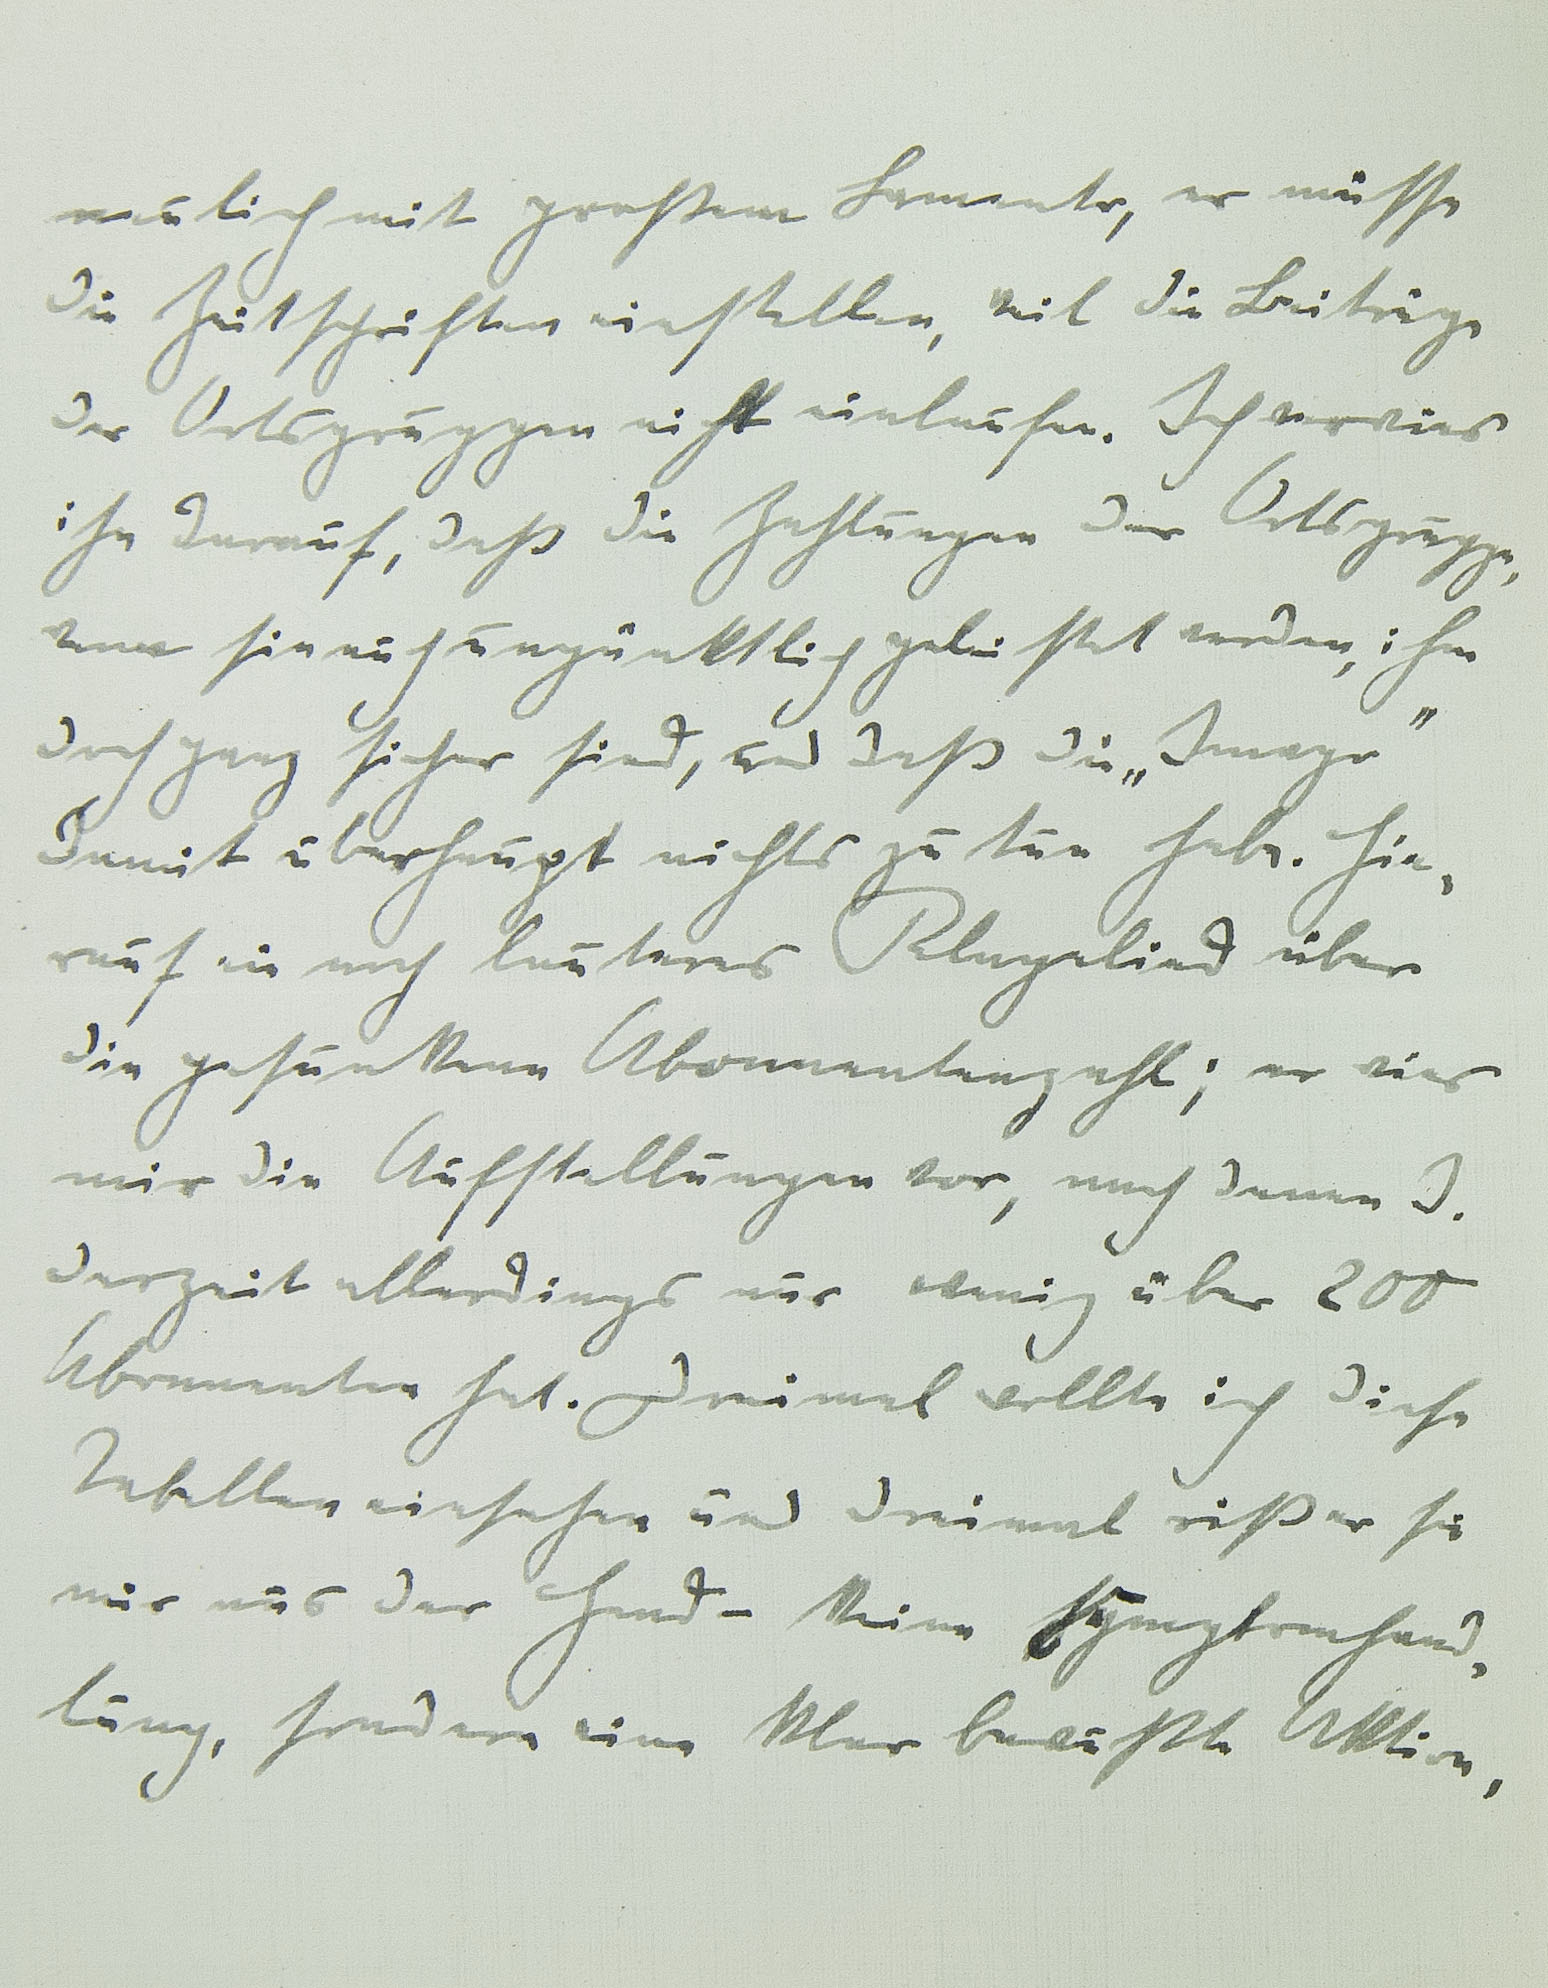 neulich mit großem Lamento, er müsse
die Zeitschriften einstellen, weil die Beiträge
der Ortsgruppen nicht einlaufen. Ich verwies
ihn darauf, daß die Zahlungen der Ortsgruppe,
wenn sie auch unpünktlich geleistet werden, ihm
doch ganz sicher sind, und daß die „Imago“
damit überhaupt nichts zu tun habe. Hie-
rauf ein noch lauteres Klagelied über
die gesunkene Abonnentenzahl; er wies
mir die Aufstellungen vor, nach denen I.
derzeit allerdings nur wenig über 200
Abonnenten hat. Dreimal wollte ich diese
Tabellen einsehen und dreimal riß er sie
mir aus der Hand – keine Symptomhand-
lung, sondern eine klar bewußte Aktion,